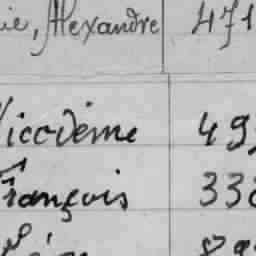 ie, Alexandre 471
Nicodème 49
François 338